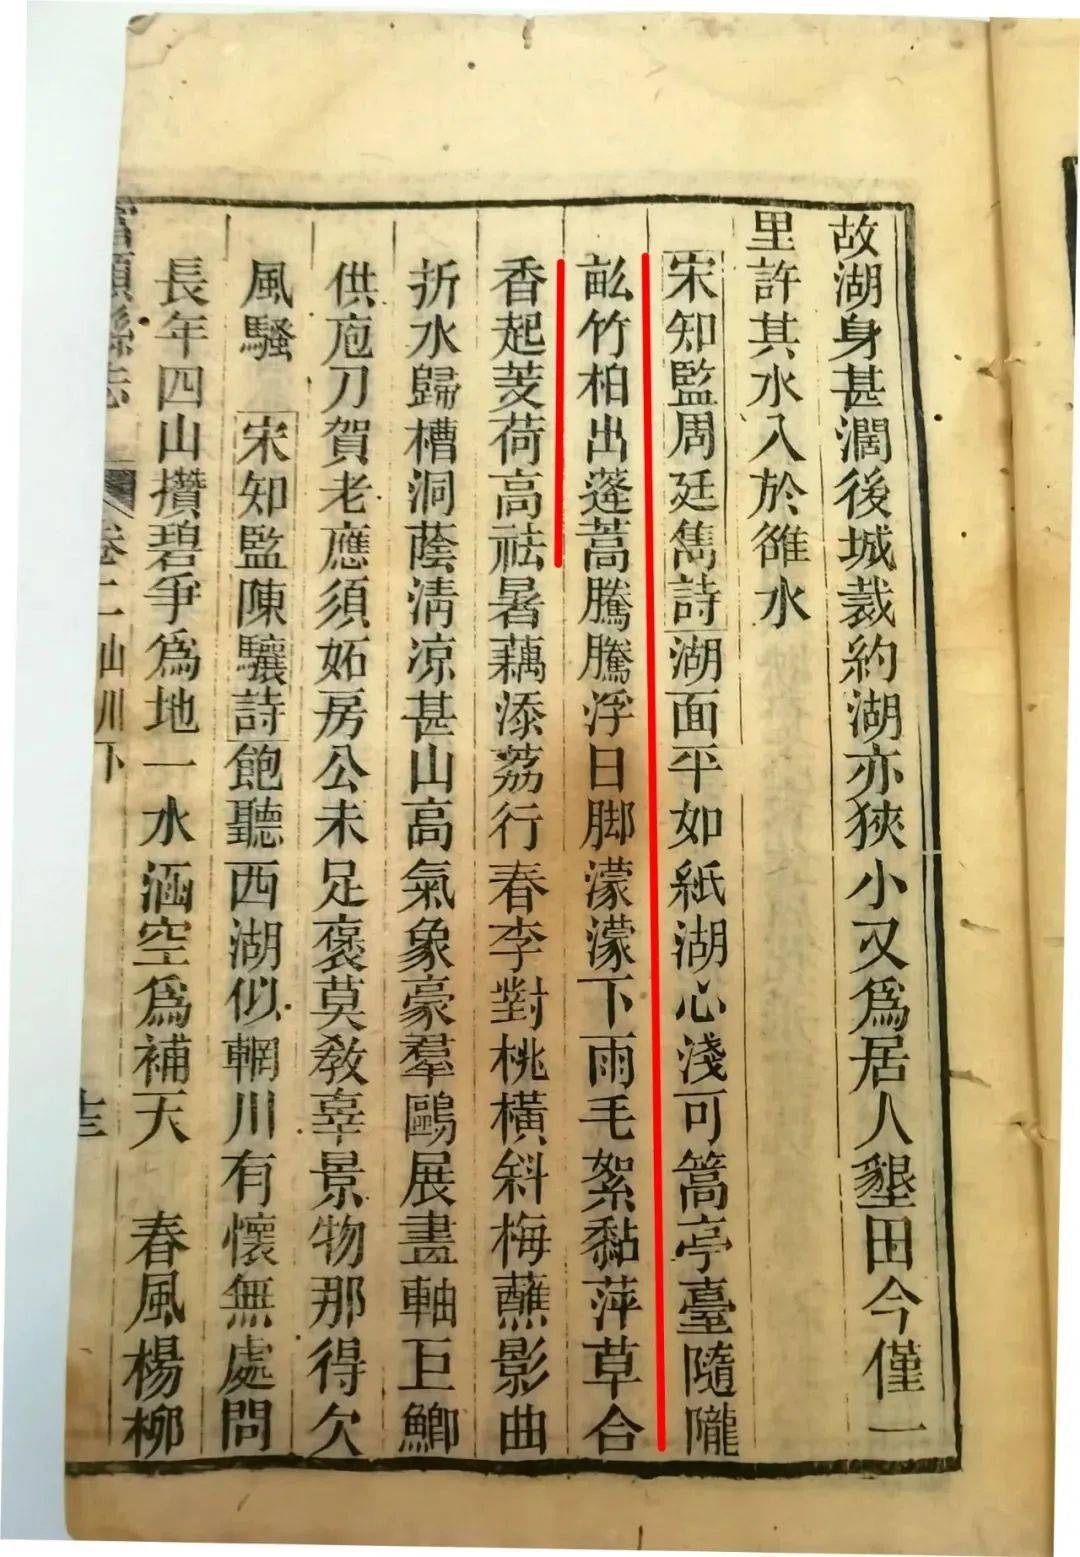 故湖身甚濶後城裁約湖亦狹小又爲居人墾田今僅一
里許其水入於雒水
宋知監周廷雋詩湖面平如紙湖心淺可篙亭臺隨隴
畝竹柏出蓬蒿騰騰浮日脚濛濛下雨毛絮黏萍草合
香起芰荷高祛暑藕添荔行春李對桃橫斜梅蘸影曲
折水歸槽洞蔭淸凉甚山高氣象豪羣鷗展畫軸巨鯽
供庖刀賀老應須妬房公未足褒莫教辜景物那得欠
風騷 宋知監陳驤詩飽聽西湖似輞川有懷無處問
長年四山攢碧爭爲地一水涵空爲補天 春風楊柳
富順縣志 卷二 山川下 十三